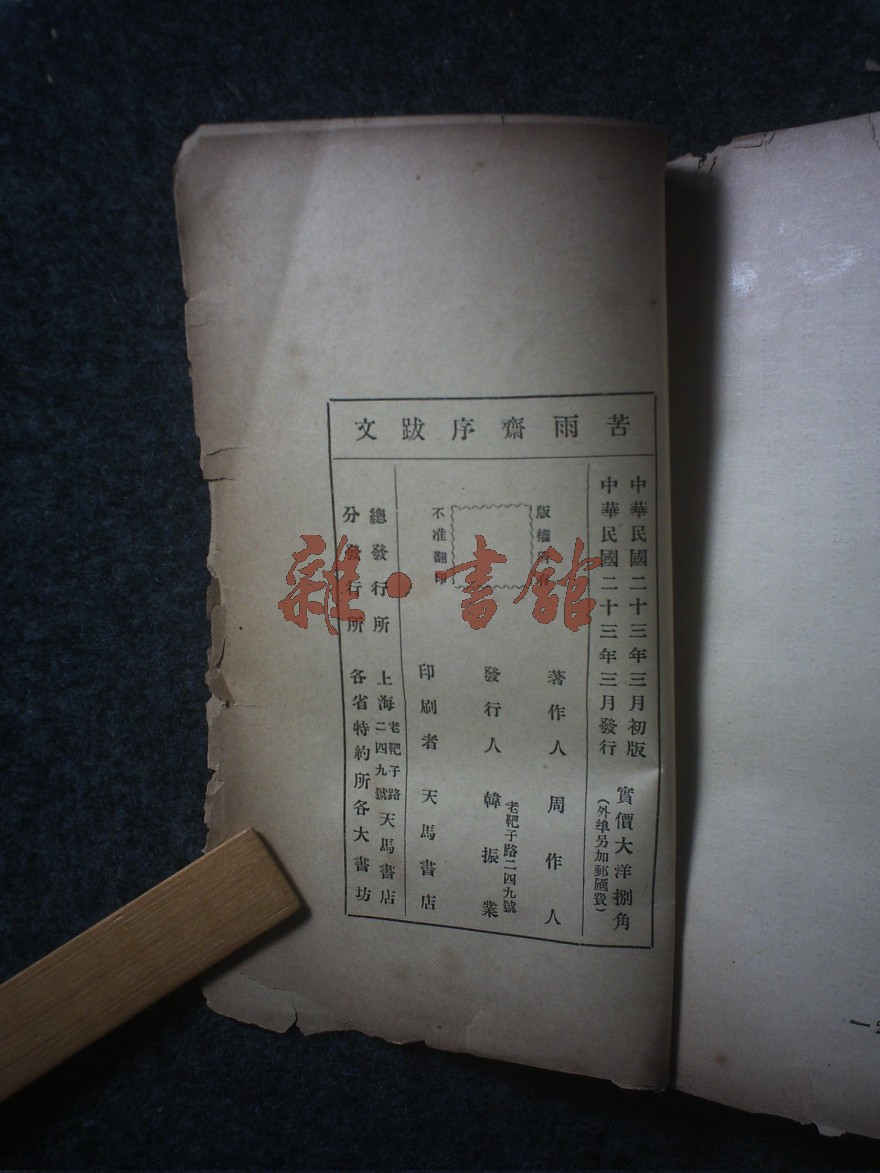 苦雨齋序跋文
中華民國二十三年三月初版
中華民國二十三年三月發行
實價大洋捌角
（外埠另加郵匯費）
版權
不准翻印
著作人 周作人
發行人 韓振業
老靶子路二四九號
印刷者 天馬書店
總發行所 上海老靶子路二四九號天馬書店
分發行所 各省特約所各大書坊
雜·書館